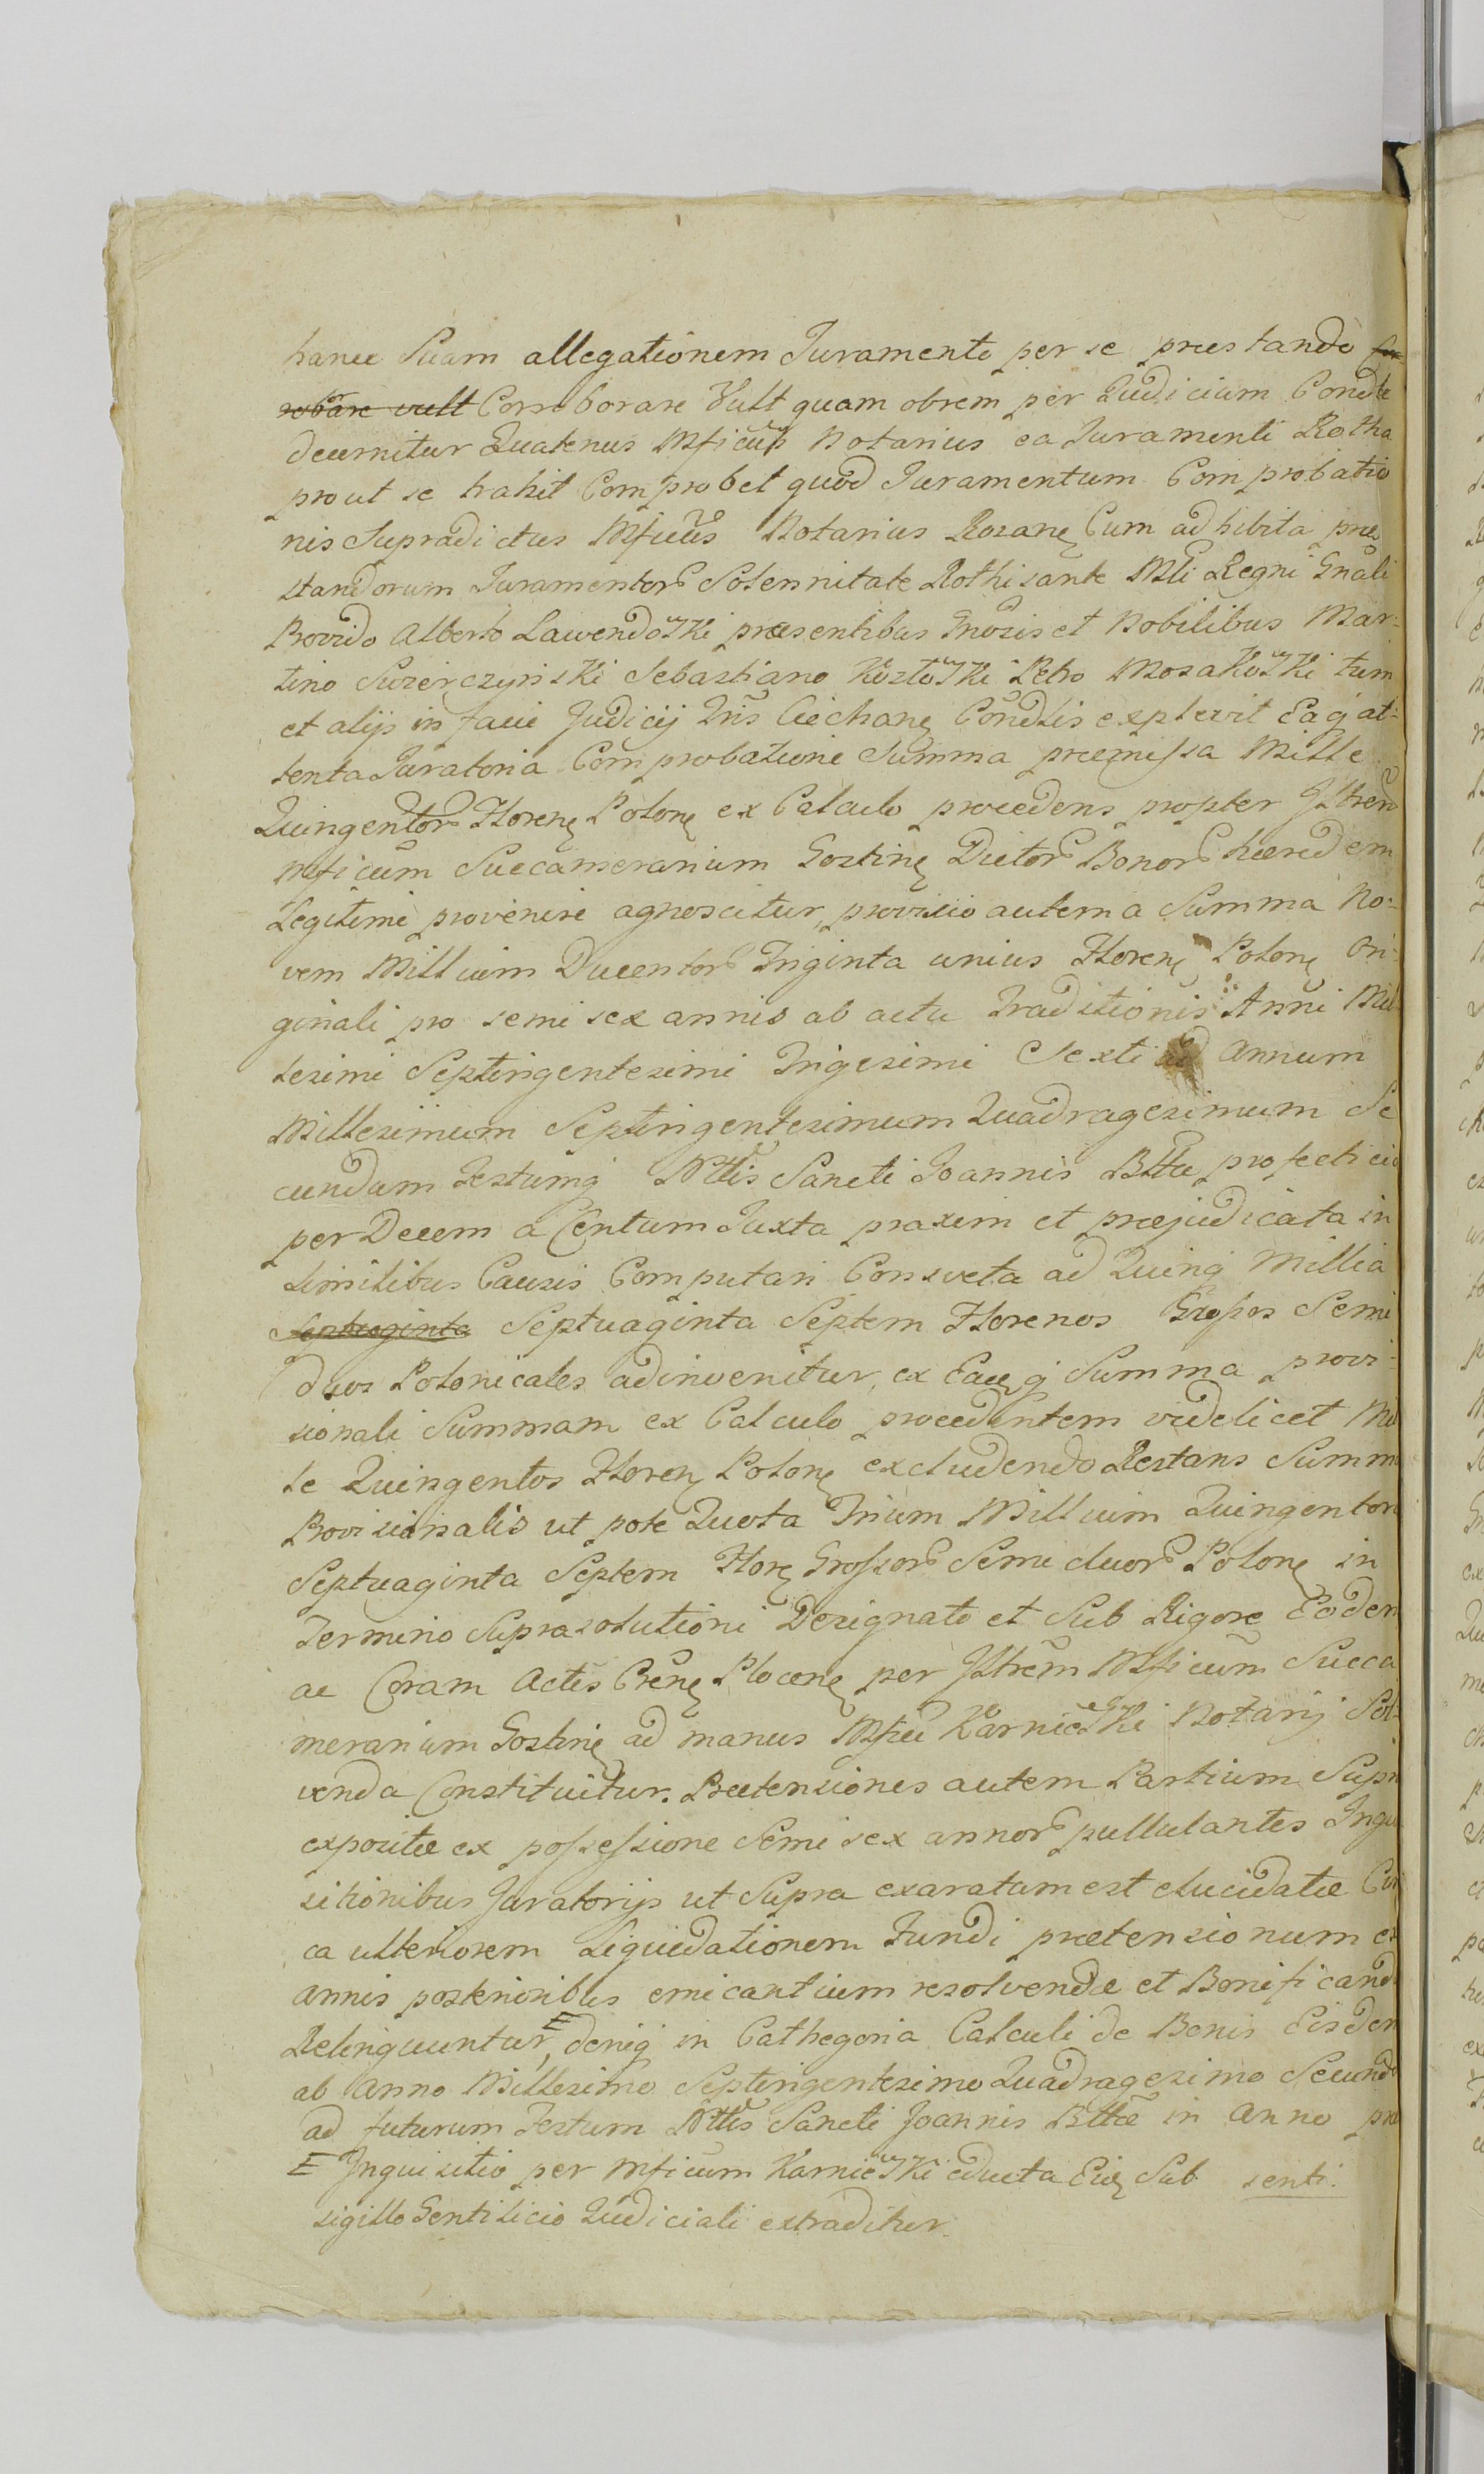 hance Suam allegationem Juramento per se præstando cor-
robare vult Corroborare Vult quam obrem per Judicium Condle
decernitur Quatenus Mficus Notarius ea Juramenti Rotha
prout se trahit Comprobet quod Juramentum Comprobatio
nis Supradictus Mficus Notarius Rozanę Cum adhibita præ
standorum Juramentor Solennitate Rothisante Mli Regni Gnali
Provido Alberto Lawendowski præsentibus Gnosis et Nobilibus Mar-
tino Swierczynski Sebastiano Kozłowski Petro Mosakowski tum
et alijs in facie Judicij Tris Ciechanę Condlis explevit Eaq at-
tenta Juratoria Comprobatione Summa præmissa Mille
Quingentor Florenę Polonę ex Calculo procedens propter Jltrem
Mficum Succamerarium Gostinę Dictor Bonor hæredem
Legitime provenire agnoscitur, provisio autem a Summa No-
vem Millium Ducentor Triginta unius Florenę Polonę Ori-
ginali pro semi sex annis ab actu Traditionis Anni Mil
lesimi Septingentesimi Trigesimi Sexti ad Annum
Millesimum Septingentesimum Quadragesimum Se
cundum Festumq Nttis Sancti Joannis Bttæ profecticio
per Decem a Centum Juxta praxim et præjudicata in
similibus Causis Computari Consveta ad Quinq Millia
Septuaginta Septuaginta Septem Florenos Grossos Semi
duos Polonicales adinvenitur, ex Eacq Summa provi-
sionali Summam ex Calculo procedentem videlicet Mil
le Quingentos Florenę Polonę excludendo Restans Summa
Provisionalis ut pote Quota Trium Millium Quingentor
Septuaginta Septem Florę Grossor Semi duor Polonę in
Termino Supra solutioni Designato et Sub Rigore Eodem
ac Coram Actis Crenę Plocenę per Jltrem Mficum Succa
merarium Gostinę ad manus Mfici Karniewski Notarij Sol-
venda Constituitur. Prætensiones autem Partium Supra
expositæ ex possessione Semi sex annor pullulantes Inqui
sitionibus Juratorijs ut Supra exaratum est elucidatæ Cir
ca ulteriorem Liquidationem Fundi prætensionum ex
annis posterioribus emicantium resolvendæ et Bonificandæ
Relinquuntur, E deniq in Cathegoria Calculi de Bonis Eisdem
ab Anno Millesimo Septingentesimo Quadragesimo Secundo
ad futurum Festum Nttis Sancti Joannis Bttæ in anno præ
E Inquisitio per Mficum Karniewski educta Eię Sub senti.
sigillo Gentilicio Judiciali extraditur.